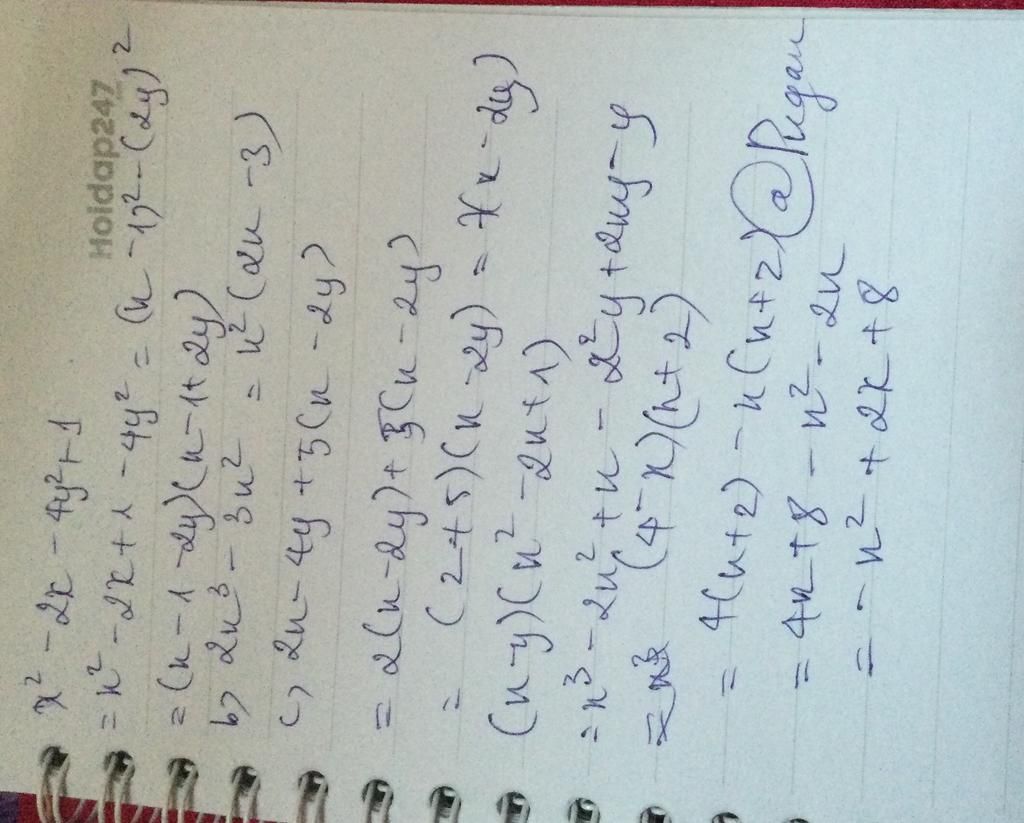 Hoidap247
x² - 2x - 4y² + 1
= x² - 2x + 1 - 4y² = (x - 1)² - (2y)²
= (x - 1 - 2y)(x - 1 + 2y)
b, 2x³ - 3x² = x²(2x - 3)
c, 2x - 4y + 5(x - 2y)
= 2(x - 2y) + 5(x - 2y)
= (2 + 5)(x - 2y) = 7(x - 2y)
(x - y)(x² - 2x + 1)
= x³ - 2x² + x - x²y + 2xy - y
(4 - x)(x + 2)
= 4(x + 2) - x(x + 2) @
= 4x + 8 - x² - 2x
= - x² + 2x + 8